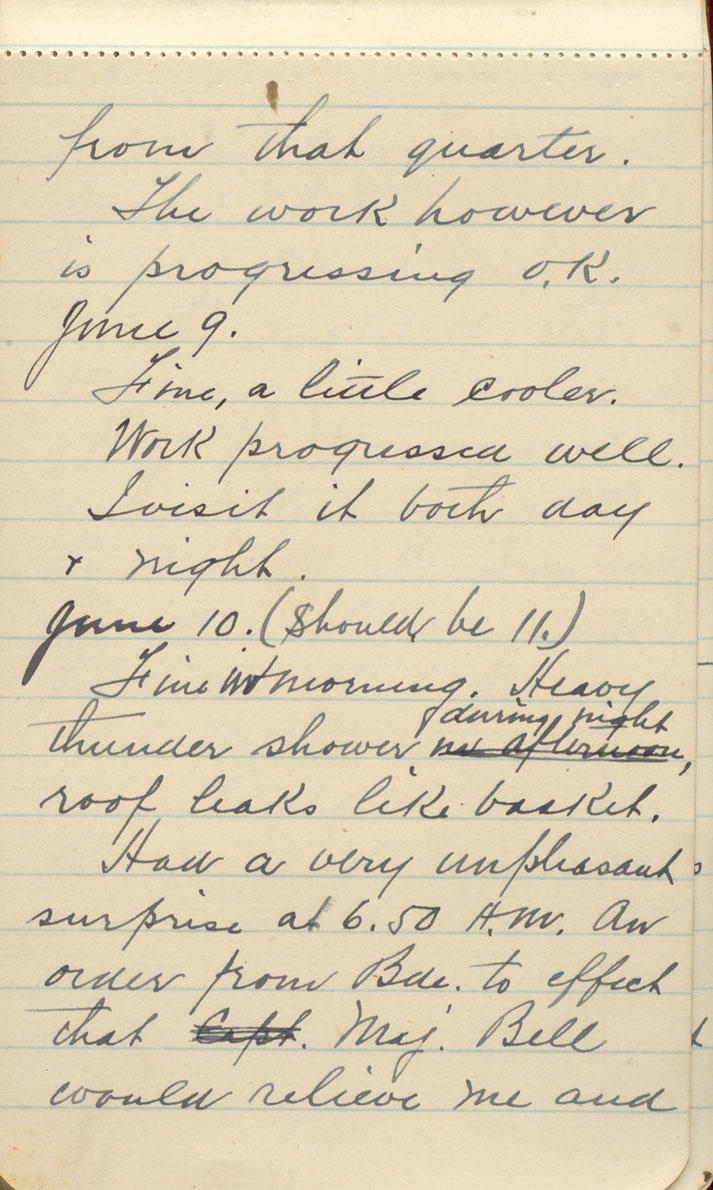 from that quarter.
The work however
is progressing O.K.
June 9.
Fine, a little cooler.
Work progressed well.
I visit it both day
+ night.
June 10. (Should be 11.)
Fine in morning. Heavy
during night
thunder shower in afternoon,
roof leaks like basket.
Had a very unpleasant
surprise at 6.50 A.M. An
order from Bde. to effect
that Capt. Maj. Bell
would relieve me and